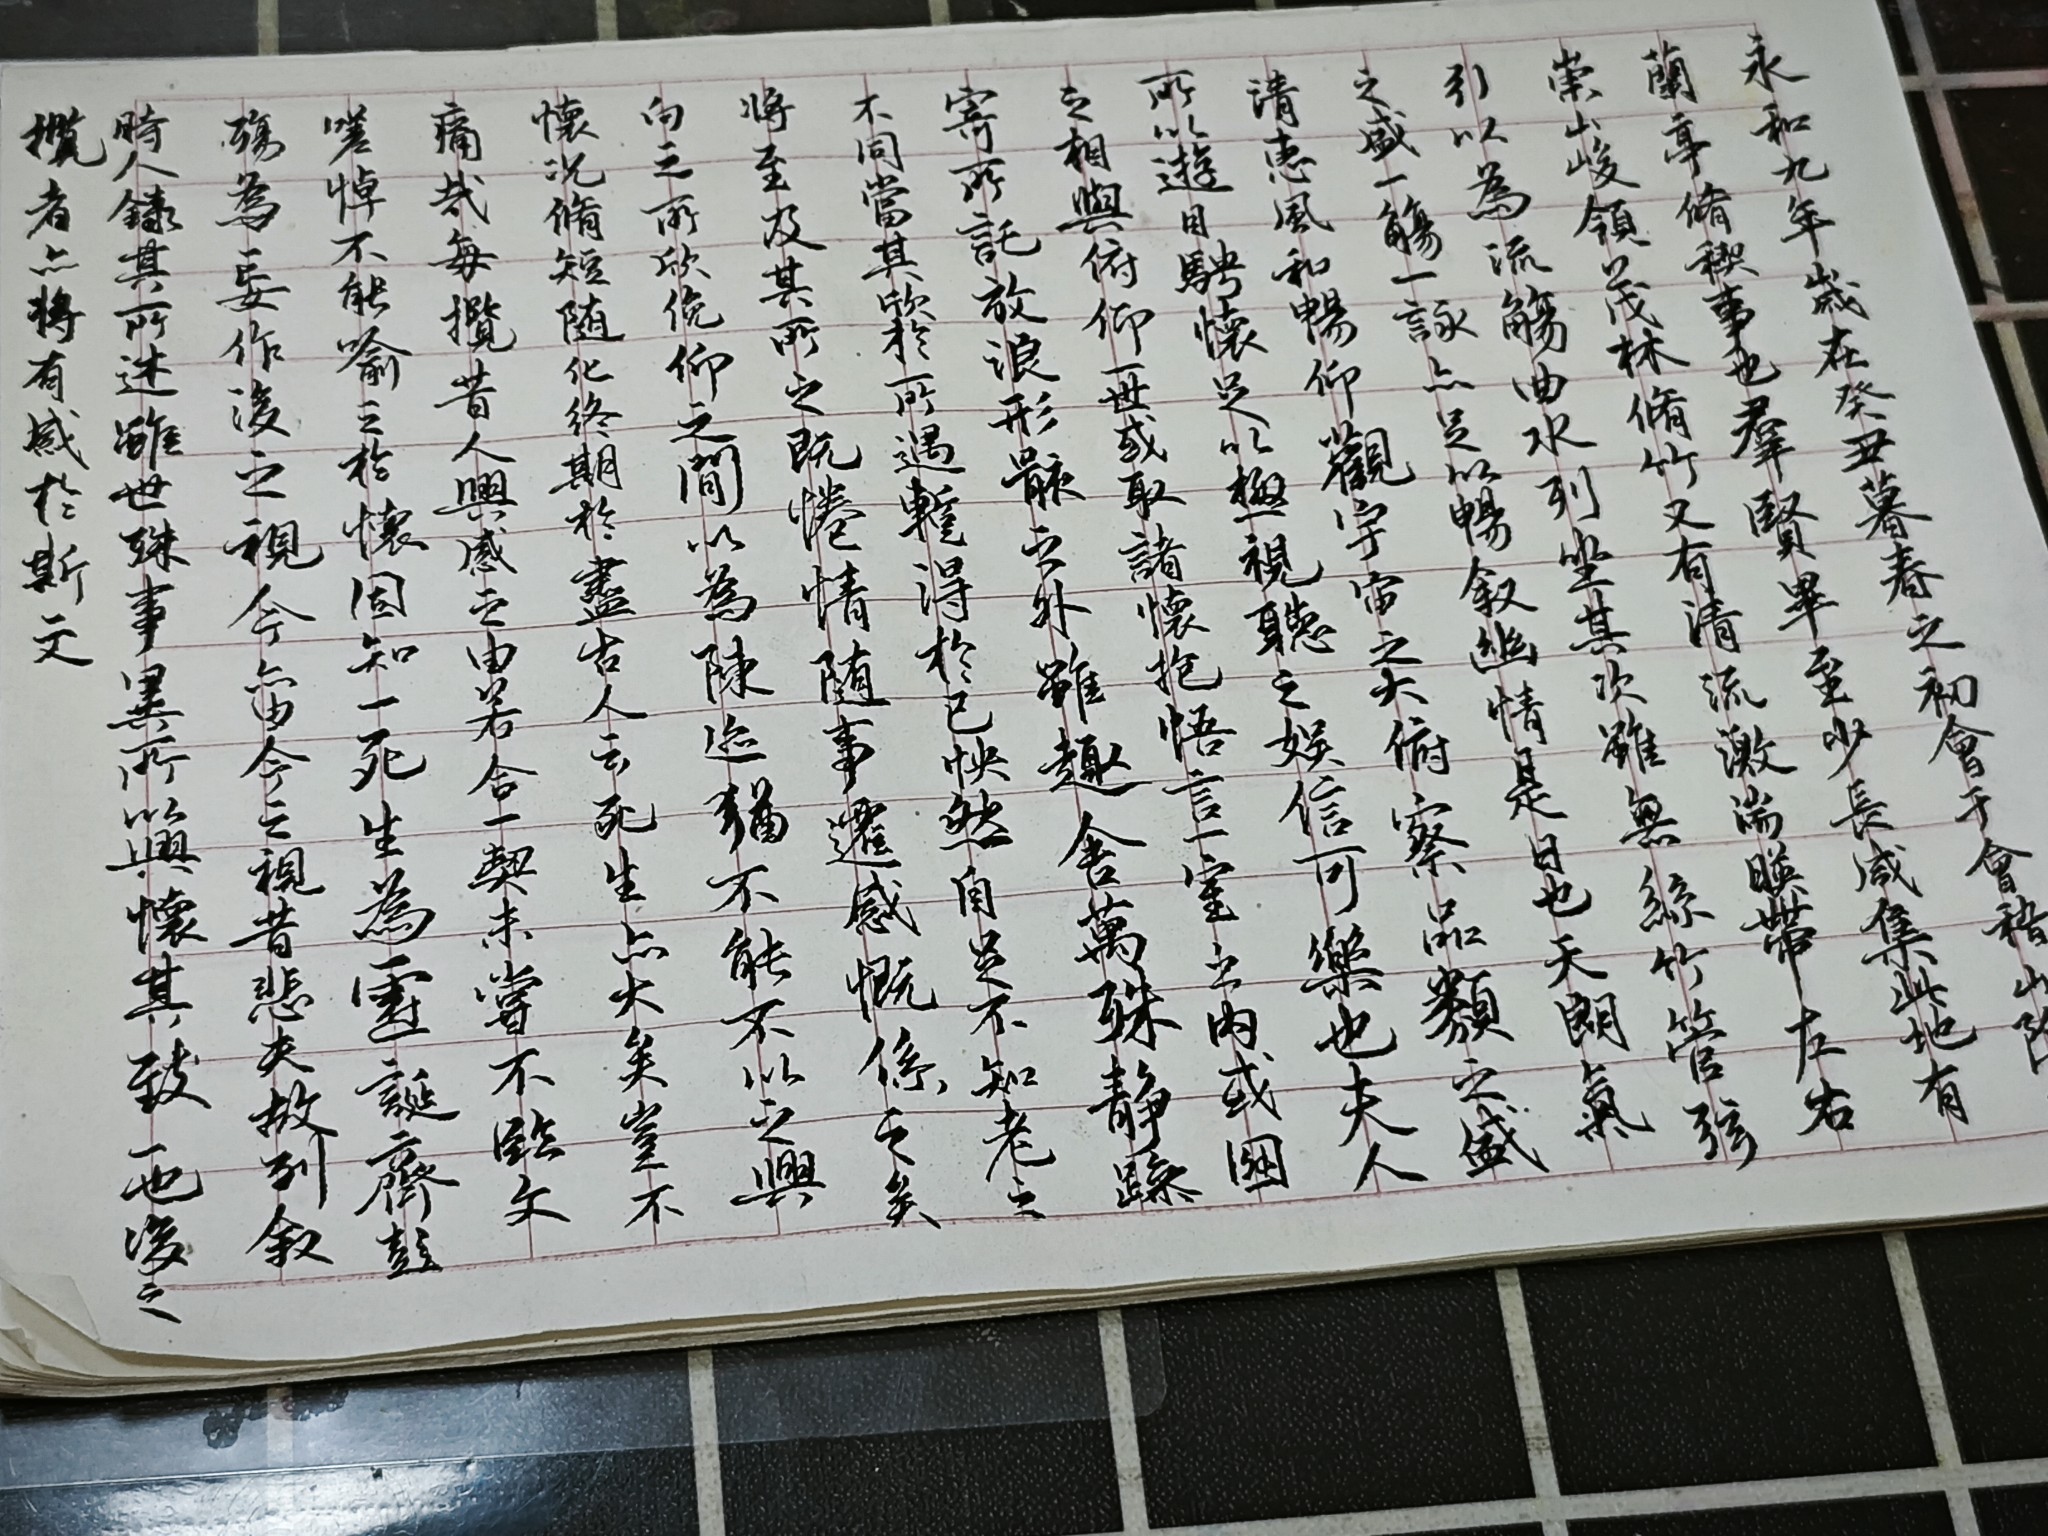 永和九年歲在癸丑暮春之初會于會稽山陰
蘭亭脩稧事也羣賢畢至少長咸集此地有
崇山峻領茂林脩竹又有清流激湍暎帶左右
引以為流觴曲水列坐其次雖無絲竹管弦
之盛一觴一詠亦足以暢叙幽情是日也天朗氣
清惠風和暢仰觀宇宙之大俯察品類之盛
所以遊目騁懷足以極視聽之娛信可樂也夫人
之相與俯仰一世或取諸懷抱悟言一室之內或因
寄所託放浪形骸之外雖趣舍萬殊静躁
不同當其欣於所遇蹔得於己怏然自足不知老之
將至及其所之既惓情随事遷感慨係之矣
向之所欣俛仰之間以為陳迹猶不能不以之興
懷況脩短随化終期於盡古人云死生亦大矣豈不
痛哉每攬昔人興感之由若合一契未嘗不臨文
嗟悼不能喻之於懷固知一死生為虛誕齊彭
殤為妄作後之視今亦由今之視昔悲夫故列叙
時人錄其所述雖世殊事異所以興懷其致一也後之
攬者亦將有感於斯文